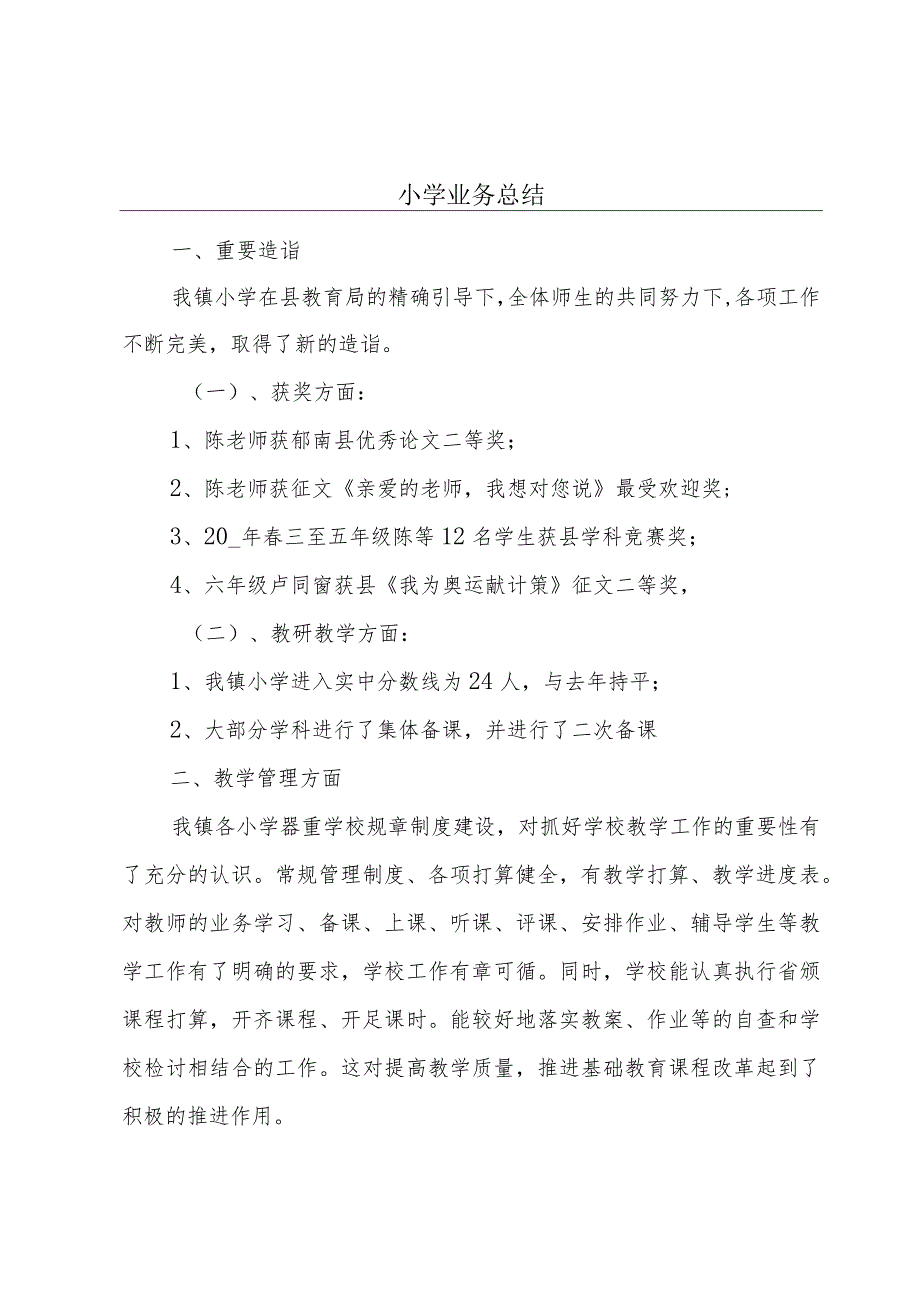 小学业务总结
一、重要造诣
我镇小学在县教育局的精确引导下,全体师生的共同努力下,各项工作
不断完美，取得了新的造诣。
（一）、获奖方面：
1、陈老师获郁南县优秀论文二等奖；
2、陈老师获征文《亲爱的老师，我想对您说》最受欢迎奖;
3、20_年春三至五年级陈等12名学生获县学科竞赛奖；
4、六年级卢同窗获县《我为奥运献计策》征文二等奖，
（二）、教研教学方面：
1、我镇小学进入实中分数线为24人，与去年持平；
2、大部分学科进行了集体备课，并进行了二次备课
二、教学管理方面
我镇各小学器重学校规章制度建设，对抓好学校教学工作的重要性有
了充分的认识。常规管理制度、各项打算健全，有教学打算、教学进度表。
对教师的业务学习、备课、上课、听课、评课、安排作业、辅导学生等教
学工作有了明确的要求，学校工作有章可循。同时，学校能认真执行省颁
课程打算，开齐课程、开足课时。能较好地落实教案、作业等的自查和学
校检讨相结合的工作。这对提高教学质量，推进基础教育课程改革起到了
积极的推进作用。